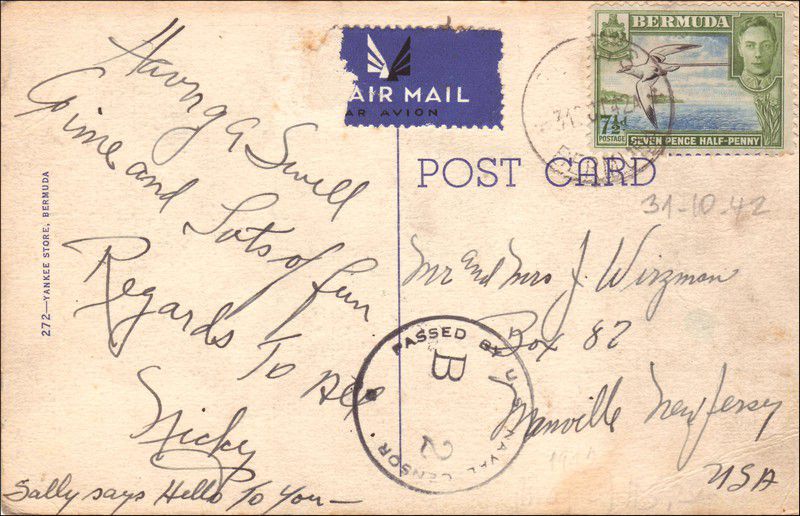 Having a Swell
Time and
Lots of fun
Regards To All
Nicky
Sally says Hello To You—
272—YANKEE STORE, BERMUDA
AIR MAIL
PAR AVION
BERMUDA
7½d
POSTAGE
SEVEN PENCE HALF-PENNY
POST CARD
31-10-42
Mr and Mrs J. Wirzman
Box 82
Manville New Jersey
USA
PASSED BY U.S. NAVAL CENSOR
B
2